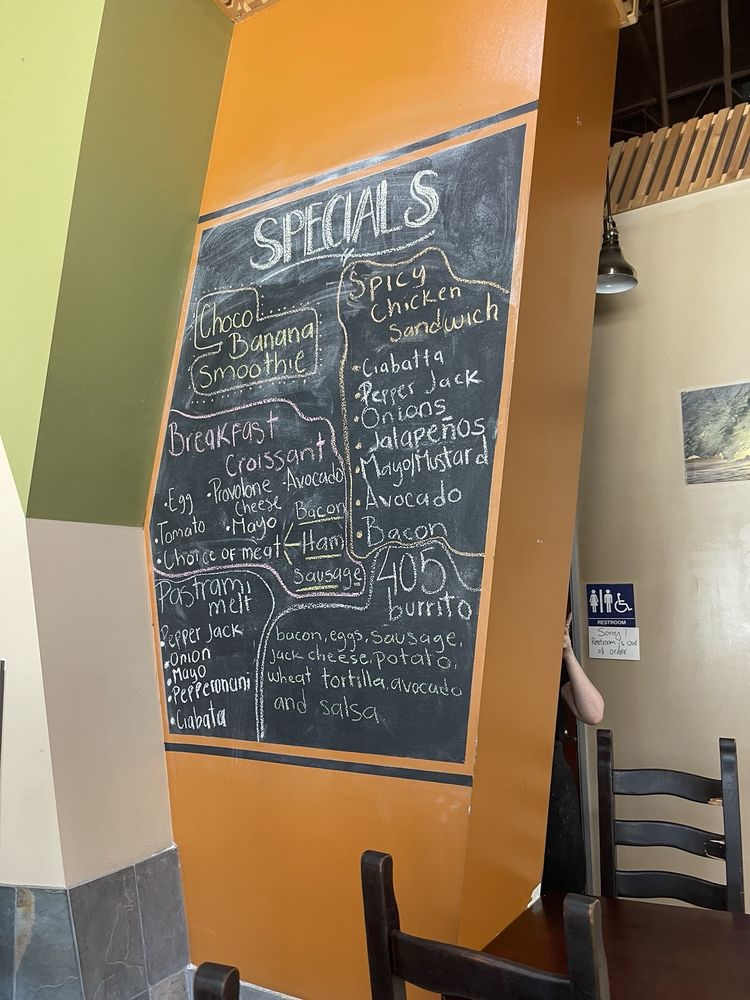 SPECIALS
Choco
Banana
Smoothie
Spicy
Chicken
Sandwich
• Ciabatta
• Pepper Jack
• Onions
• Jalapeños
• Mayo/Mustard
• Avocado
• Bacon
Breakfast
Croissant
• Egg • Provolone cheese • Avocado
• Tomato • Mayo
• Choice of meat
Bacon
Ham
Sausage
Pastrami
melt
• Pepper Jack
• Onion
• Mayo
• Pepperoncini
• Ciabata
405
burrito
bacon, eggs, sausage,
jack cheese, potato,
wheat tortilla, avocado
and salsa.
RESTROOM
Sorry!
Restroom is out
of order